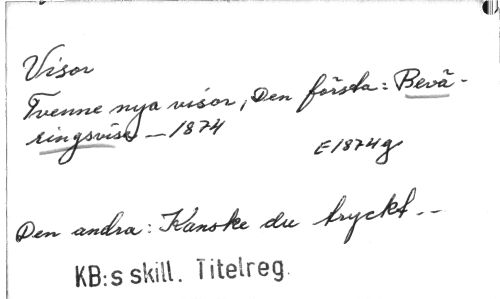 Visor
Tvenne nya visor, Den första: Bevä-
ringsvisa — 1874
E1874g
Den andra: Kanske du tryckt --
KB:s skill. Titelreg.